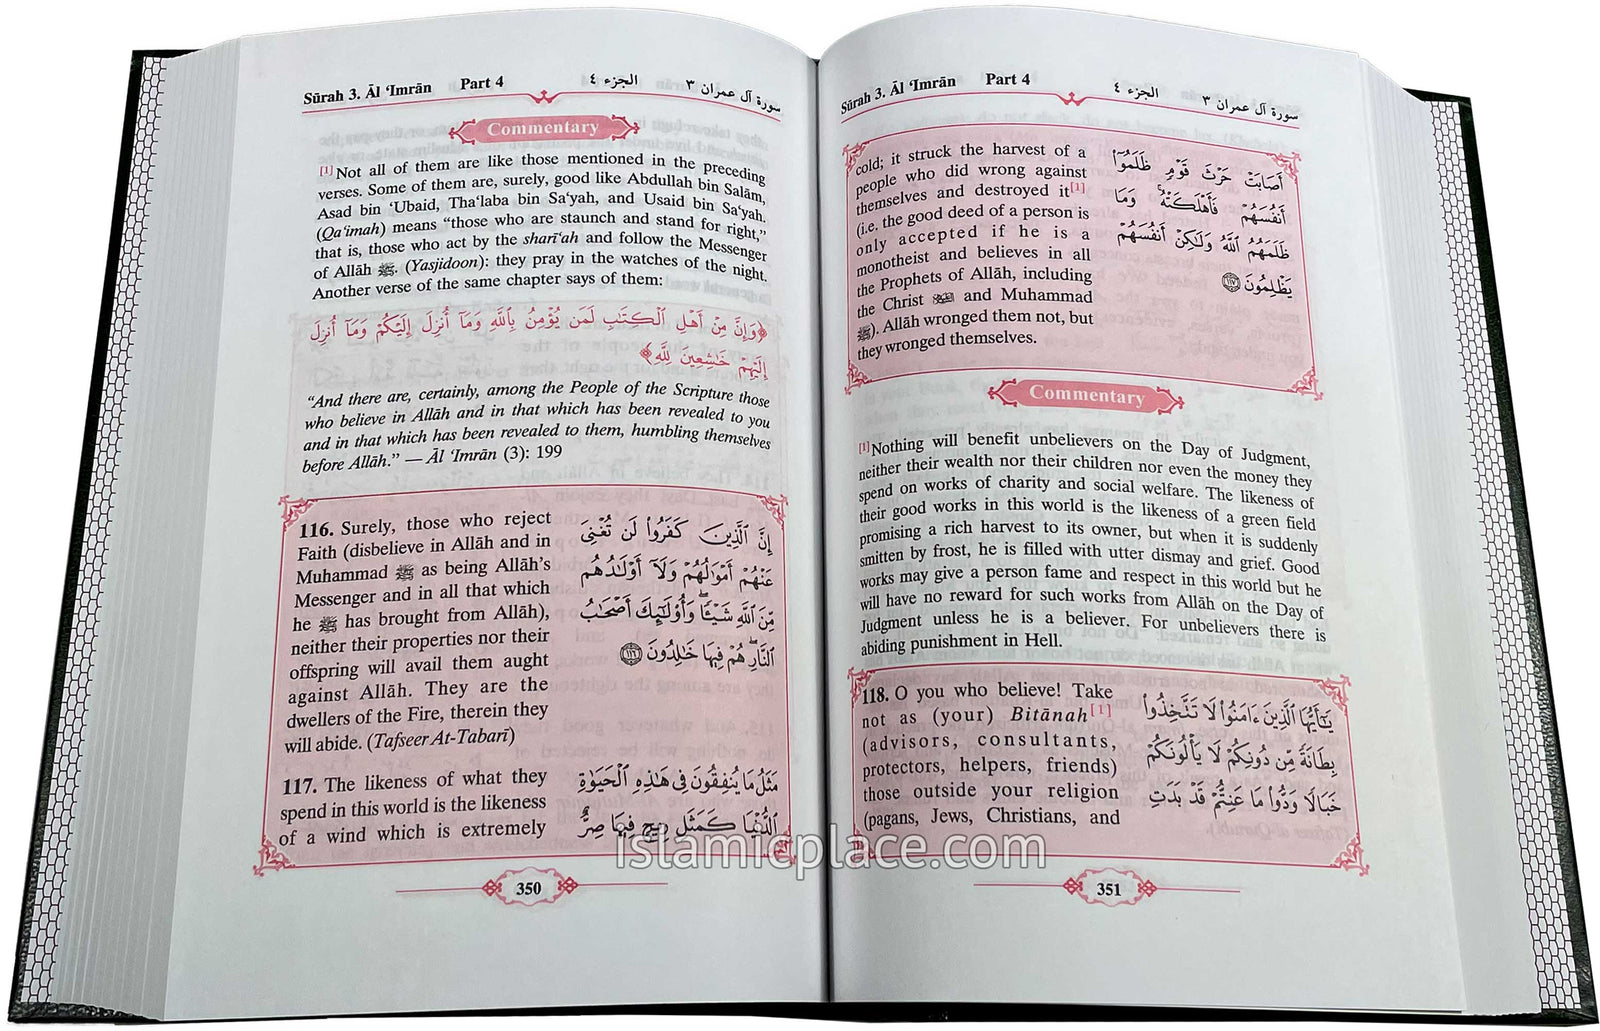 Sūrah 3. Āl ‘Imrān Part 4 الجزء ٤ سورة آل عمران ٣
Commentary
[1] Not all of them are like those mentioned in the preceding
verses. Some of them are, surely, good like Abdullah bin Salām,
Asad bin ‘Ubaid, Tha‘laba bin Sa‘yah, and Usaid bin Sa‘yah.
(Qa‘imah) means “those who are staunch and stand for right,”
that is, those who act by the sharī‘ah and follow the Messenger
of Allāh ﷺ. (Yasjidoon): they pray in the watches of the night.
Another verse of the same chapter says of them:
﴿وَإِنَّ مِنْ أَهْلِ ٱلْكِتَٰبِ لَمَن يُؤْمِنُ بِٱللَّهِ وَمَآ أُنزِلَ إِلَيْكُمْ وَمَآ أُنزِلَ
إِلَيْهِمْ خَٰشِعِينَ لِلَّهِ﴾
“And there are, certainly, among the People of the Scripture those
who believe in Allāh and in that which has been revealed to you
and in that which has been revealed to them, humbling themselves
before Allāh.” — Āl ‘Imrān (3): 199
116. Surely, those who reject
Faith (disbelieve in Allāh and in
Muhammad ﷺ as being Allāh’s
Messenger and in all that which
he ﷺ has brought from Allāh),
neither their properties nor their
offspring will avail them aught
against Allāh. They are the
dwellers of the Fire, therein they
will abide. (Tafseer At-Tabarī)
إِنَّ ٱلَّذِينَ كَفَرُوا۟ لَن تُغْنِىَ
عَنْهُمْ أَمْوَٰلُهُمْ وَلَآ أَوْلَٰدُهُم
مِّنَ ٱللَّهِ شَيْـًٔا ۖ وَأُو۟لَٰٓئِكَ أَصْحَٰبُ
ٱلنَّارِ ۚ هُمْ فِيهَا خَٰلِدُونَ ١١٦
117. The likeness of what they
spend in this world is the likeness
of a wind which is extremely
مَثَلُ مَا يُنفِقُونَ فِى هَٰذِهِ ٱلْحَيَوٰةِ
ٱلدُّنْيَا كَمَثَلِ رِيحٍ فِيهَا صِرٌّ
350
Sūrah 3. Āl ‘Imrān Part 4 الجزء ٤ سورة آل عمران ٣
cold; it struck the harvest of a
people who did wrong against
themselves and destroyed it[1]
(i.e. the good deed of a person is
only accepted if he is a
monotheist and believes in all
the Prophets of Allāh, including
the Christ and Muhammad
ﷺ). Allāh wronged them not, but
they wronged themselves.
أَصَابَتْ حَرْثَ قَوْمٍ ظَلَمُوٓا۟
أَنفُسَهُمْ فَأَهْلَكَتْهُ ۚ وَمَا
ظَلَمَهُمُ ٱللَّهُ وَلَٰكِنْ أَنفُسَهُمْ
يَظْلِمُونَ ١١٧
Commentary
[1] Nothing will benefit unbelievers on the Day of Judgment,
neither their wealth nor their children nor even the money they
spend on works of charity and social welfare. The likeness of
their good works in this world is the likeness of a green field
promising a rich harvest to its owner, but when it is suddenly
smitten by frost, he is filled with utter dismay and grief. Good
works may give a person fame and respect in this world but he
will have no reward for such works from Allāh on the Day of
Judgment unless he is a believer. For unbelievers there is
abiding punishment in Hell.
118. O you who believe! Take
not as (your) Bitānah[1]
(advisors, consultants,
protectors, helpers, friends)
those outside your religion
(pagans, Jews, Christians, and
يَٰٓأَيُّهَا ٱلَّذِينَ ءَامَنُوا۟ لَا تَتَّخِذُوا۟
بِطَانَةً مِّن دُونِكُمْ لَا يَأْلُونَكُمْ
خَبَالًا وَدُّوا۟ مَا عَنِتُّمْ قَدْ بَدَتِ
351
islamicplace.com